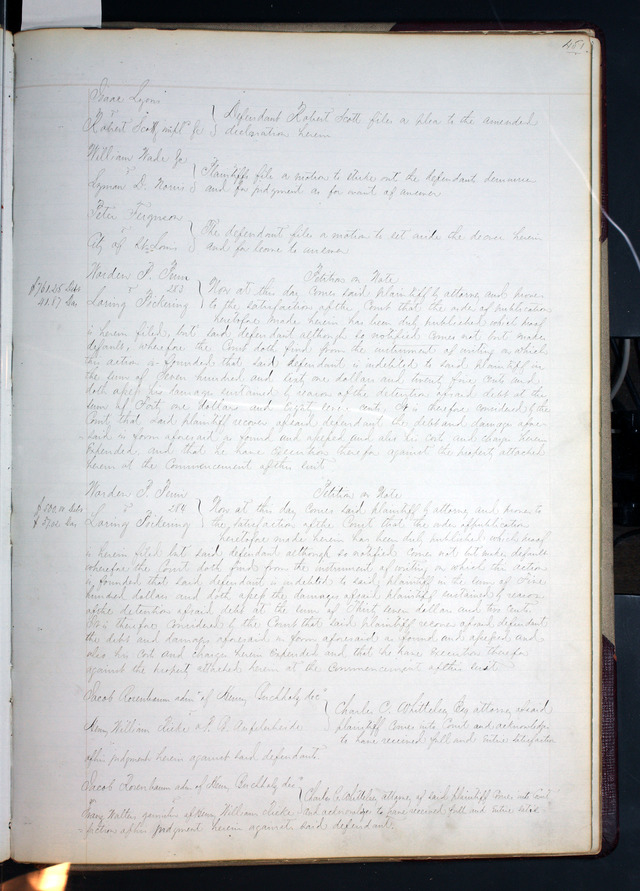 461
Isaac Lyons
v
Robert Scott, impl'd &c } Defendant Robert Scott files a plea to the amended
declaration herein
William Wade &c
v
Lyman D. Norris } Plaintiffs file a motion to strike out the defendants demurrer
and for judgment as for want of answer
Peter Ferguson
v
City of St. Louis } The defendant files a motion to set aside the decree herein
and for leave to answer
Warden F.
v 283 Petition on Note
$761.25 Debt
41.87 Dam
Loring Pickering } Now at this day comes said plaintiff by attorney and proves
to the satisfaction of the Court that the order of publication
heretofore made herein has been duly published which proof
is herein filed, but said defendant although so notified comes not but makes
default, wherefore the Court doth find from the instrument of writing on which
this action is founded that said defendant is indebted to said plaintiff in
the sum of Seven hundred and sixty one dollars and twenty five cents and
doth assess his damages sustained by reason of the detention of said debt at the
sum of Forty one dollars and eighty seven cents. It is therefore considered by the
Court that said plaintiff recover of said defendant the debt and damages afore
said in form aforesaid as found and assessed and also his costs and charges herein
expended, and that he have execution therefor against the property attached
herein at the Commencement of this suit
Warden F.
v 284 Petition on Note
$500.00 Debt
$37.02 Dam
Loring Pickering } Now at this day comes said plaintiff by attorney and proves to
the satisfaction of the Court that the order of publication
heretofore made herein has been duly published which proof
is herein filed but said defendant although so notified comes not but makes default
wherefore the Court doth find from the instrument of writing on which this action
is founded that said defendant is indebted to said plaintiff in the sum of Five
hundred dollars and doth assess the damages of said plaintiff sustained by reason
of the detention of said debt at the sum of Thirty seven dollars and two cents
It is therefore considered by the Court that said plaintiff recover of said defendant
the debt and damages aforesaid in form aforesaid as found and assessed and
also his costs and charges herein expended and that he have execution therefor
against the property attached herein at the commencement of this suit
Jacob Rosenbaum adm'r of Henry Buchholz dec'd
v
Henry William & } Charles C. Whittelsey Esq attorney of said
plaintiff comes into Court and acknowledges
to have received full and entire satisfaction
of his judgment herein against said defendants.
Jacob Rosenbaum adm'r of Henry Buchholz dec'd
v
garnishee of Henry William } Charles C. Whittelsey attorney of said plaintiff comes into Court
and acknowledges to have received full and entire satis
faction of his judgment herein against said defendant.